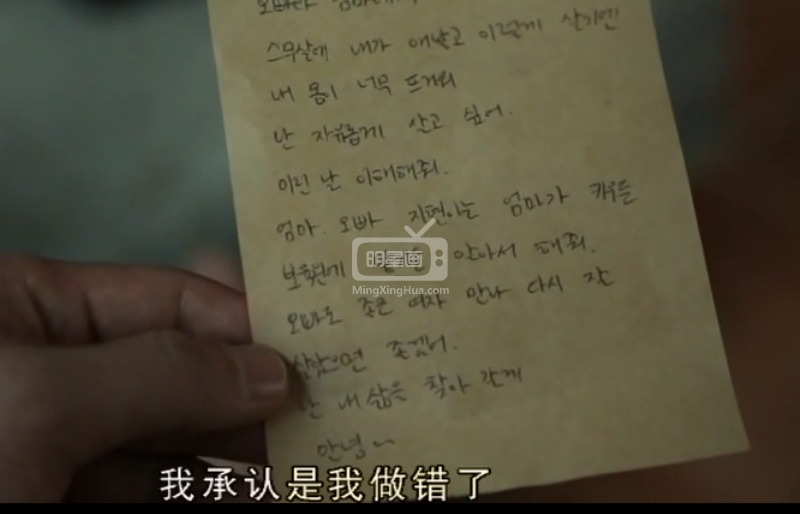 오빠랑 엄마에게
스무살에 내가 애낳고 이렇게 살기엔
내 몸이 너무 뜨거워
난 자유롭게 살고 싶어.
이런 날 이해해줘.
엄마. 오빠 지편이는 엄마가 키우든
보육원에 알아서 해줘.
오빠도 좋은 여자 만나 다시 잘
살았으면 좋겠어.
난 내 삶을 찾아 갈게
안녕~
明星画
MingXingHua.com
我承认是我做错了